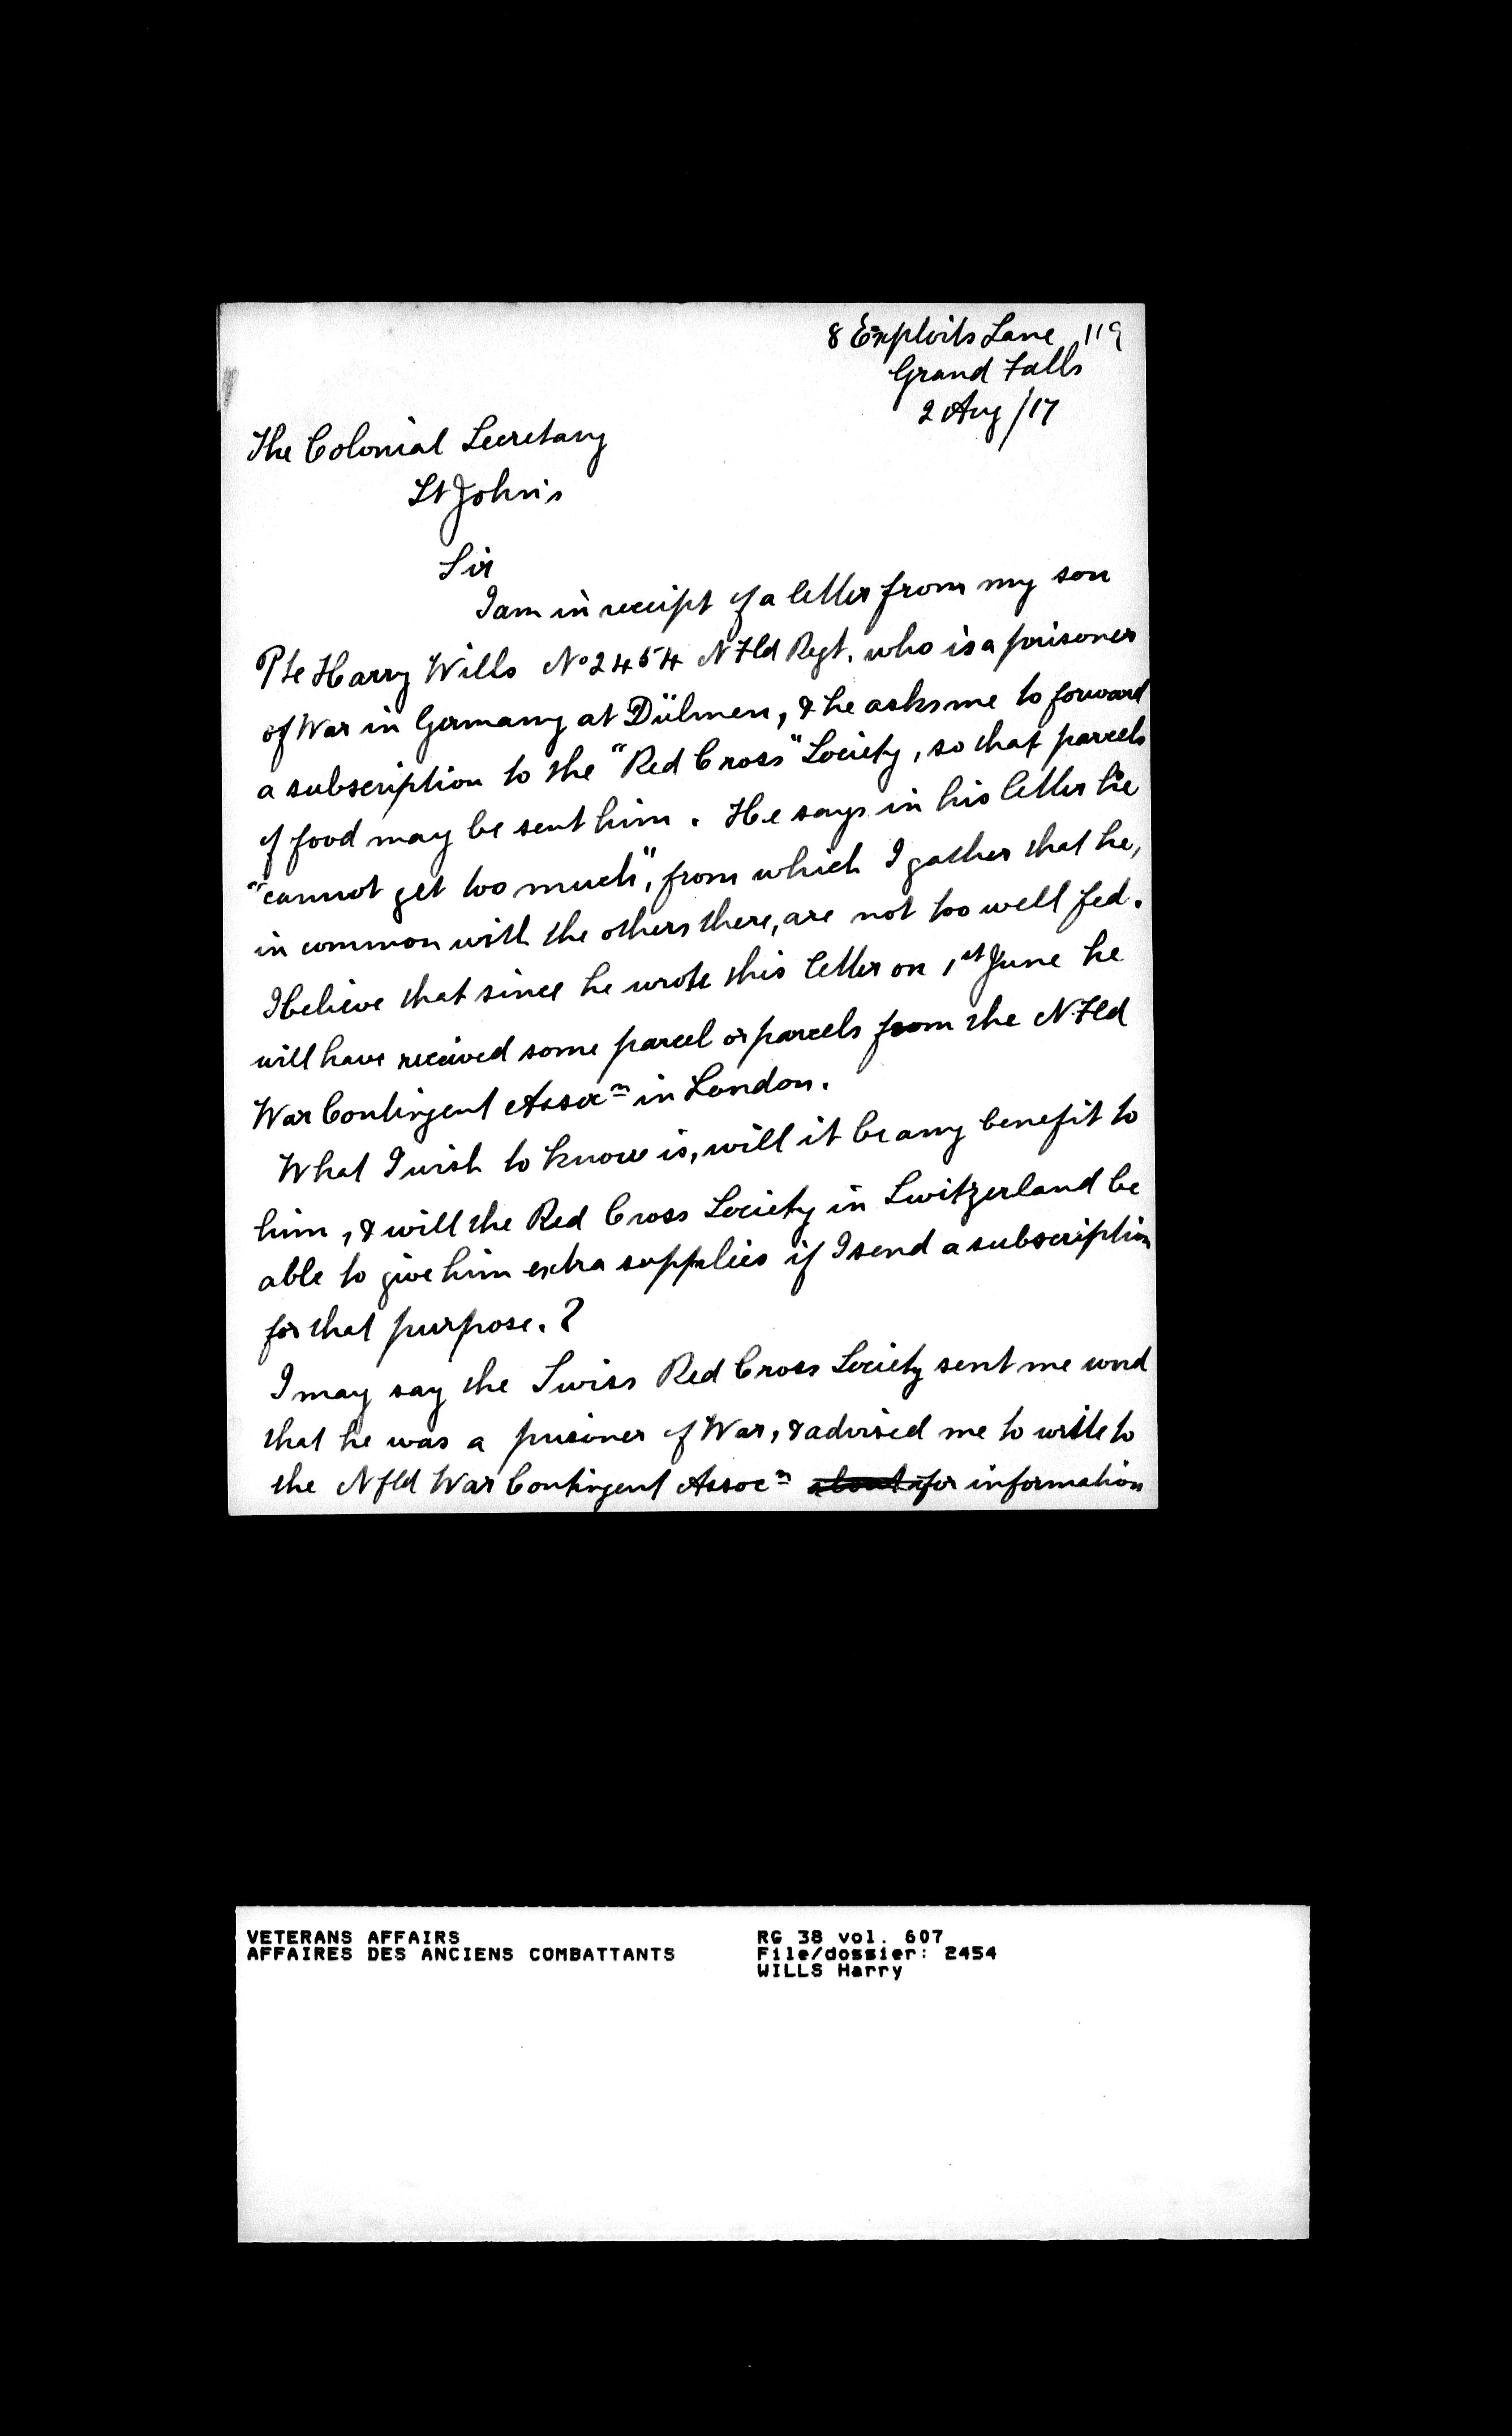 8 Exploits Lane 119
Grand Falls
2 Aug /17
The Colonial Secretary
St John's
Sir
I am in receipt of a letter from my son
Pte Harry Wills No 2454 NFld Regt. who is a prisoner
of War in Germany at Dülmen, & he asks me to forward
a subscription to the "Red Cross" Society, so that parcels
of food may be sent him. He says in his letter he
"cannot get too much", from which I gather that he,
in common with the others there, are not too well fed.
I believe that since he wrote this letter on 1st June he
will have received some parcel or parcels from the NFld
War Contingent Assocn in London.
What I wish to know is, will it be any benefit to
him, & will the Red Cross Society in Switzerland be
able to give him extra supplies if I send a subscription
for that purpose. ?
I may say the Swiss Red Cross Society sent me word
that he was a prisoner of War, & advised me to write to
the Nfld War Contingent Assocn for information
VETERANS AFFAIRS RG 38 vol. 607
AFFAIRES DES ANCIENS COMBATTANTS File/dossier: 2454
WILLS Harry